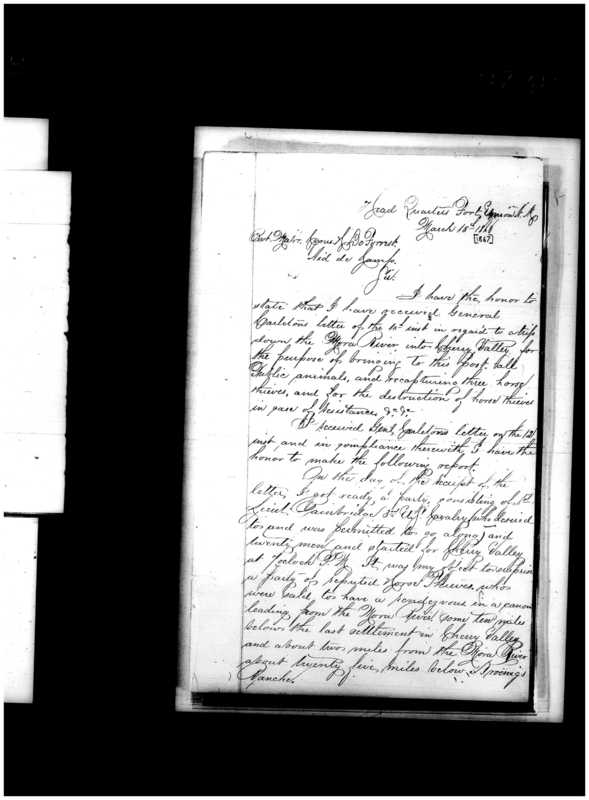 Head Quarters Fort Union N. M.
March 18th 1868
[1867]
Bvt. Major Cyrus H. De Forrest
Aid de Camp.
Sir.
I have the honor to
state that I have received General
Carletons letter of the 10th inst in regard to a trip
down the Mora River into Cherry Valley for
the purpose of bringing to this post, all
Public animals, and recapturing three horse
thieves, and for the destruction of horse thieves
in case of resistance, &c &c
I received Genl. Carletons letter on the 12th
inst and in compliance therewith, I have the
honor to make the following report.
On the day of the receipt of the
letter, I got ready, a party, consisting of 1st
Lieut. Cambridge 3rd U.S. Cavalry (who desired
to, and was permitted to go along) and
twenty men, and started for Cherry Valley
at 7 oclock P.M. It was my object to surprise
a party of reputed Horse Thieves, who
were said to have a rendezvous in a canon
leading from the Mora River some ten miles
below the last settlement in Cherry Valley
and about two miles from the Mora River
about twenty five miles below Kroenig's
Ranche.